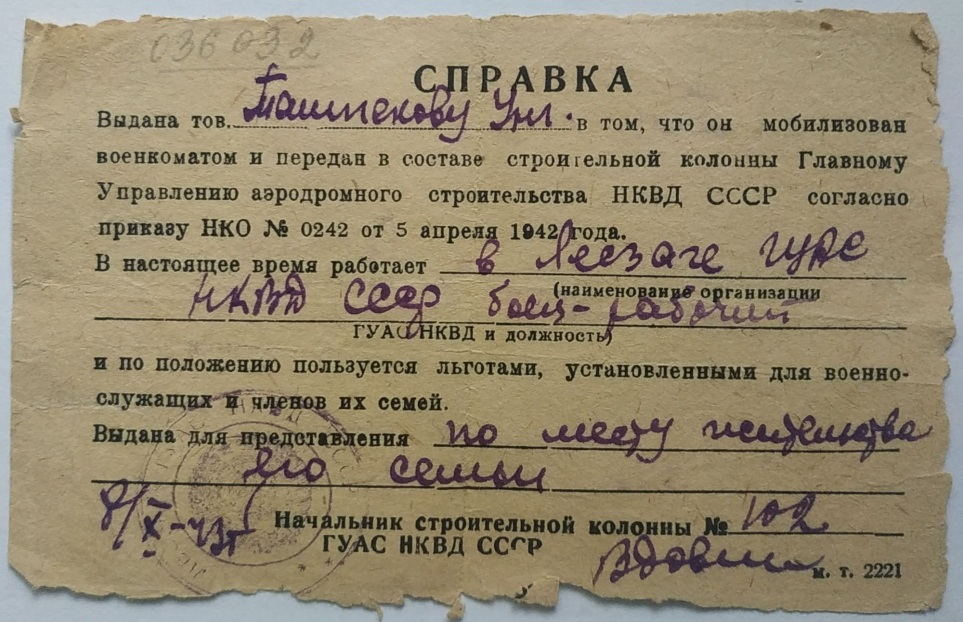 036032
СПРАВКА
Выдана тов. Ташпекову Унг. в том, что он мобилизован
военкоматом и передан в составе строительной колонны Главному
Управлению аэродромного строительства НКВД СССР согласно
приказу НКО № 0242 от 5 апреля 1942 года.
В настоящее время работает в Лесзаге ГУАС
(наименование организации
НКВД СССР боец-рабочий
ГУАС НКВД и должность)
и по положению пользуется льготами, установленными для военно-
служащих и членов их семей.
Выдана для представления по месту жительства
его семьи
8/X-43г
Начальник строительной колонны № 102
ГУАС НКВД СССР
Вдовин
м. т. 2221